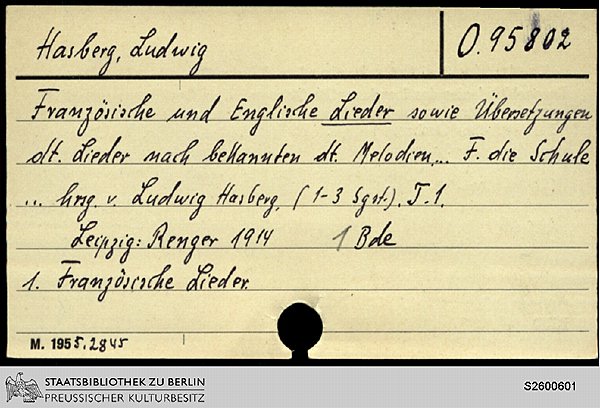 Hasberg, Ludwig
O.95802
Französische und Englische Lieder sowie Übersetzungen
dt. Lieder nach bekannten dt. Melodien... F. die Schule
... hrsg. v. Ludwig Hasberg, (1-3 Sgst.). T.1.
Leipzig: Renger 1914 1 Bde
1. Französische Lieder.
M. 1955.2845
STAATSBIBLIOTHEK ZU BERLIN
PREUSSISCHER KULTURBESITZ
S2600601